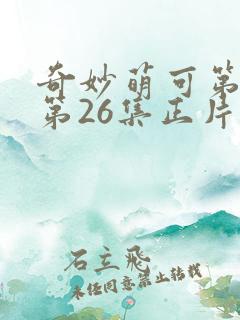 奇妙萌可第
第26集正片
石立飛
未经同意禁止转载